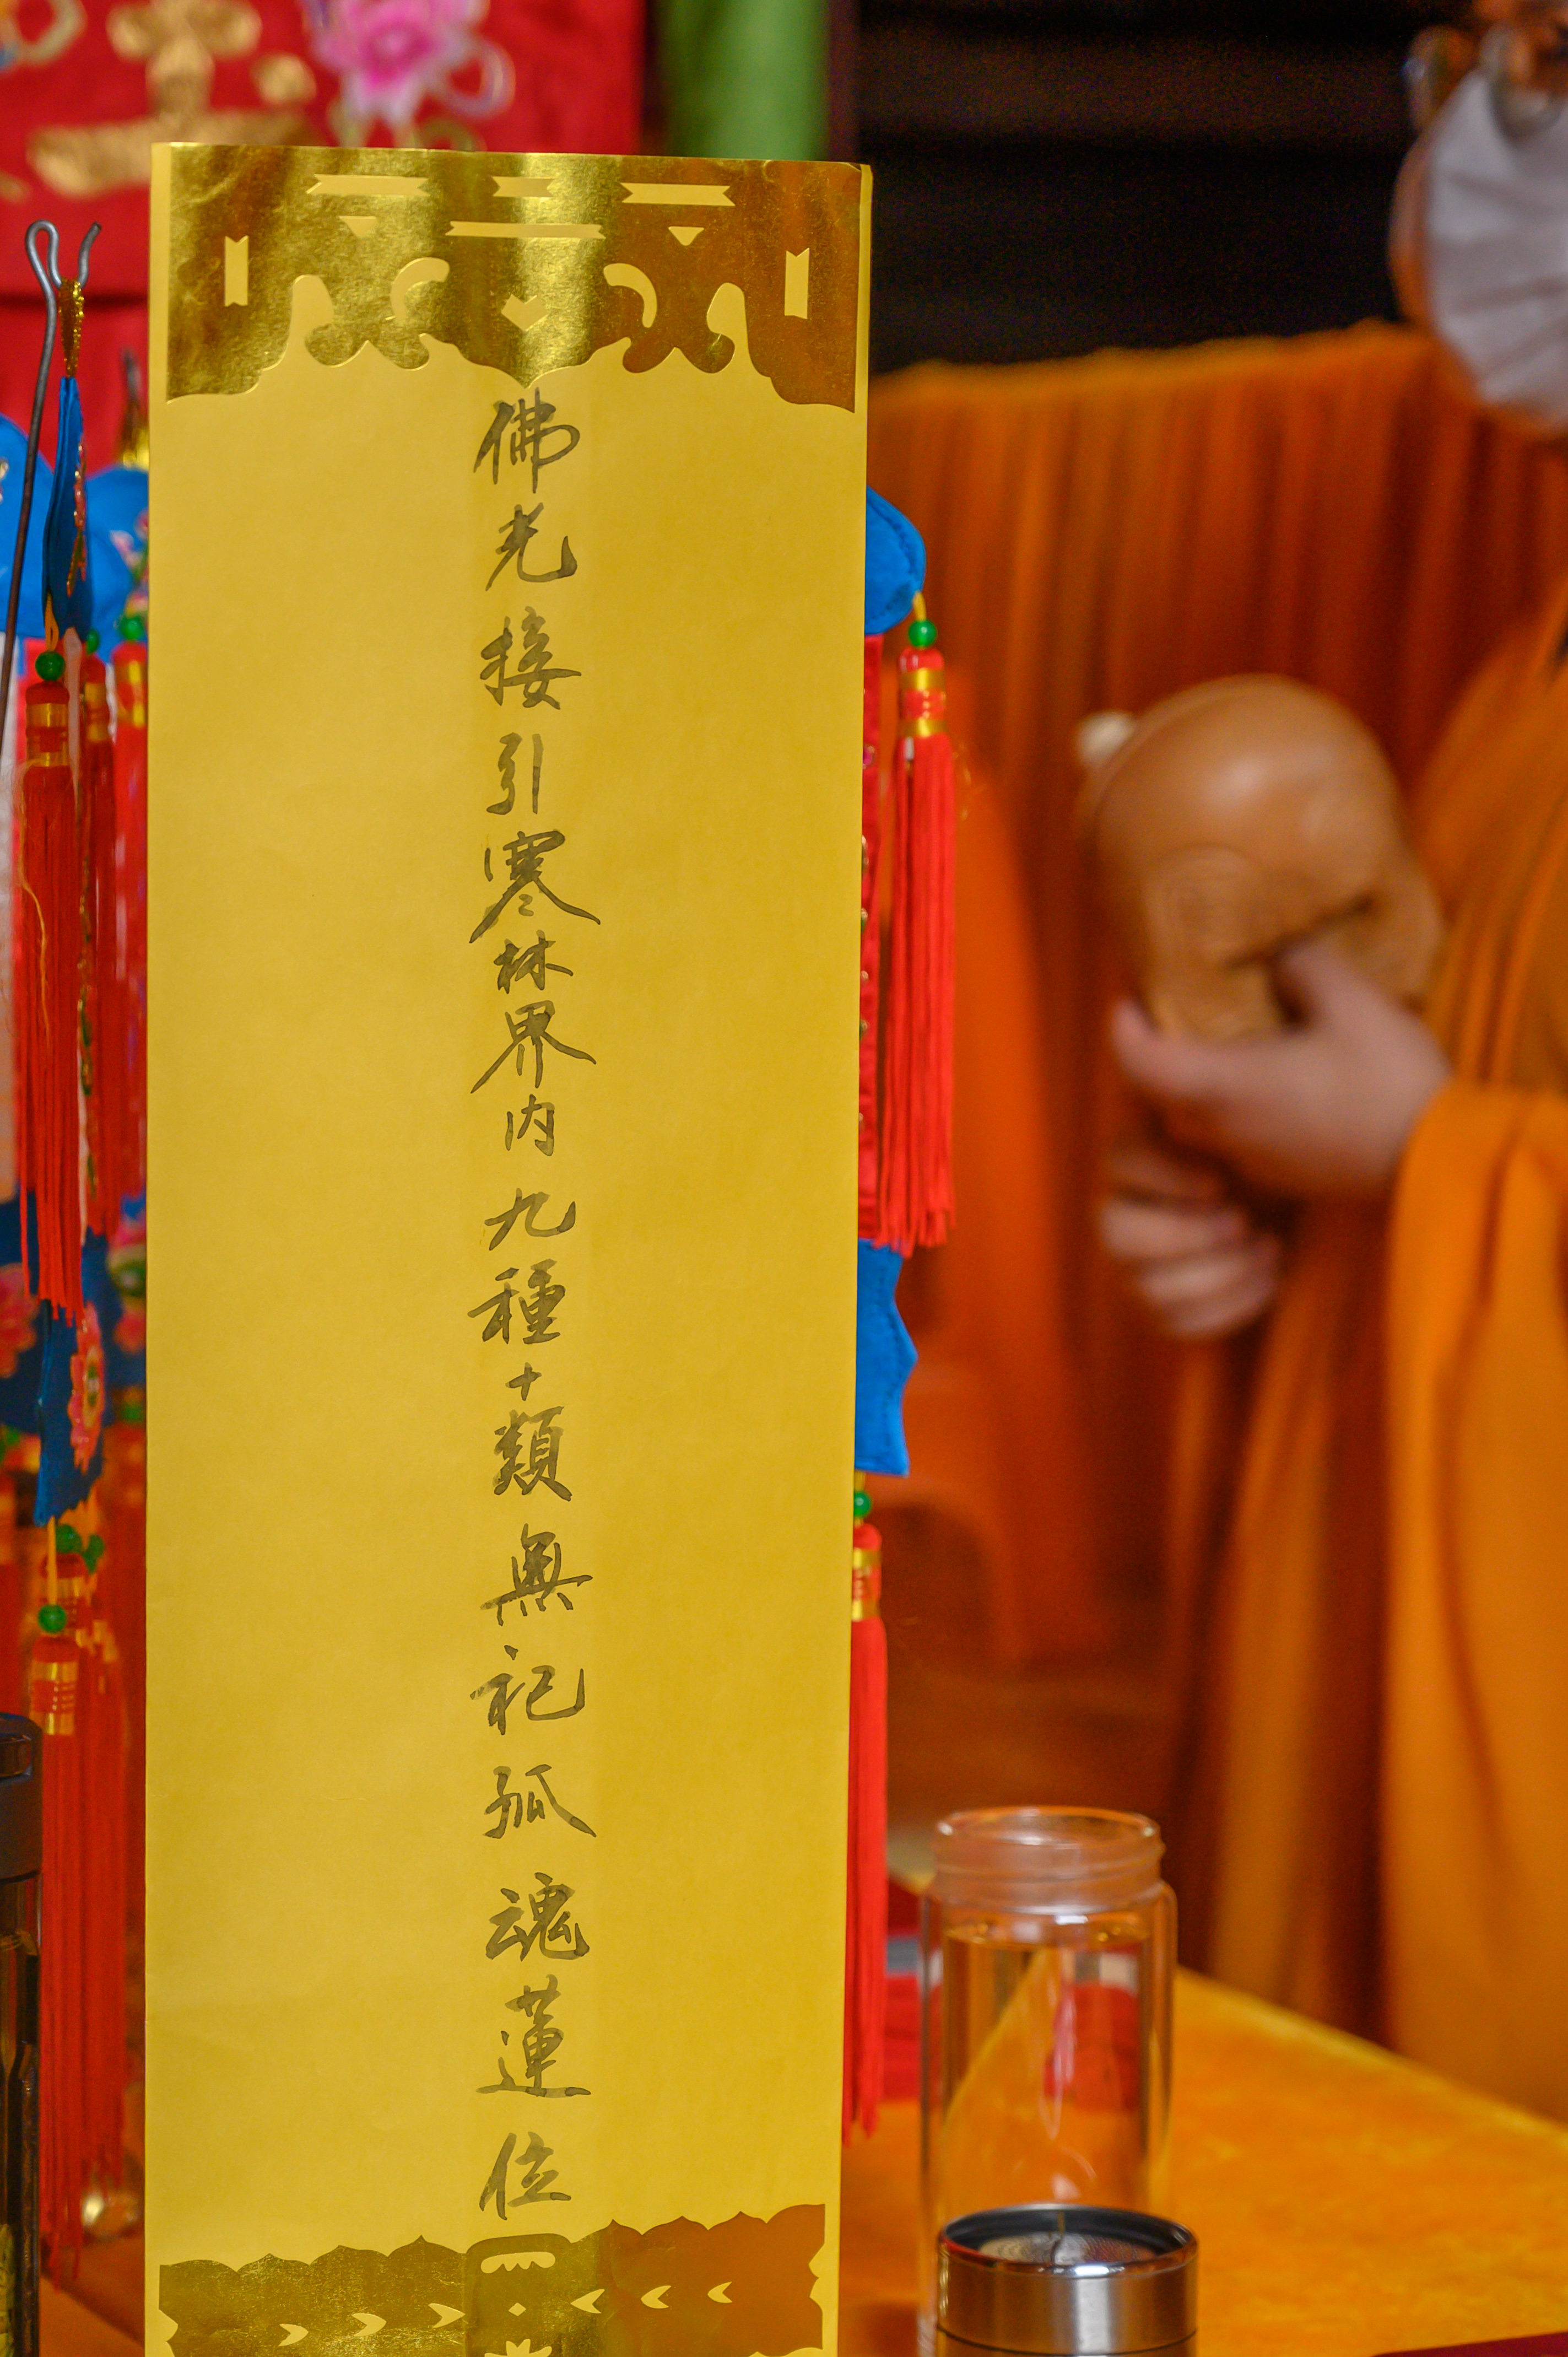 佛光接引寒林界内九種十類無祀孤魂蓮位